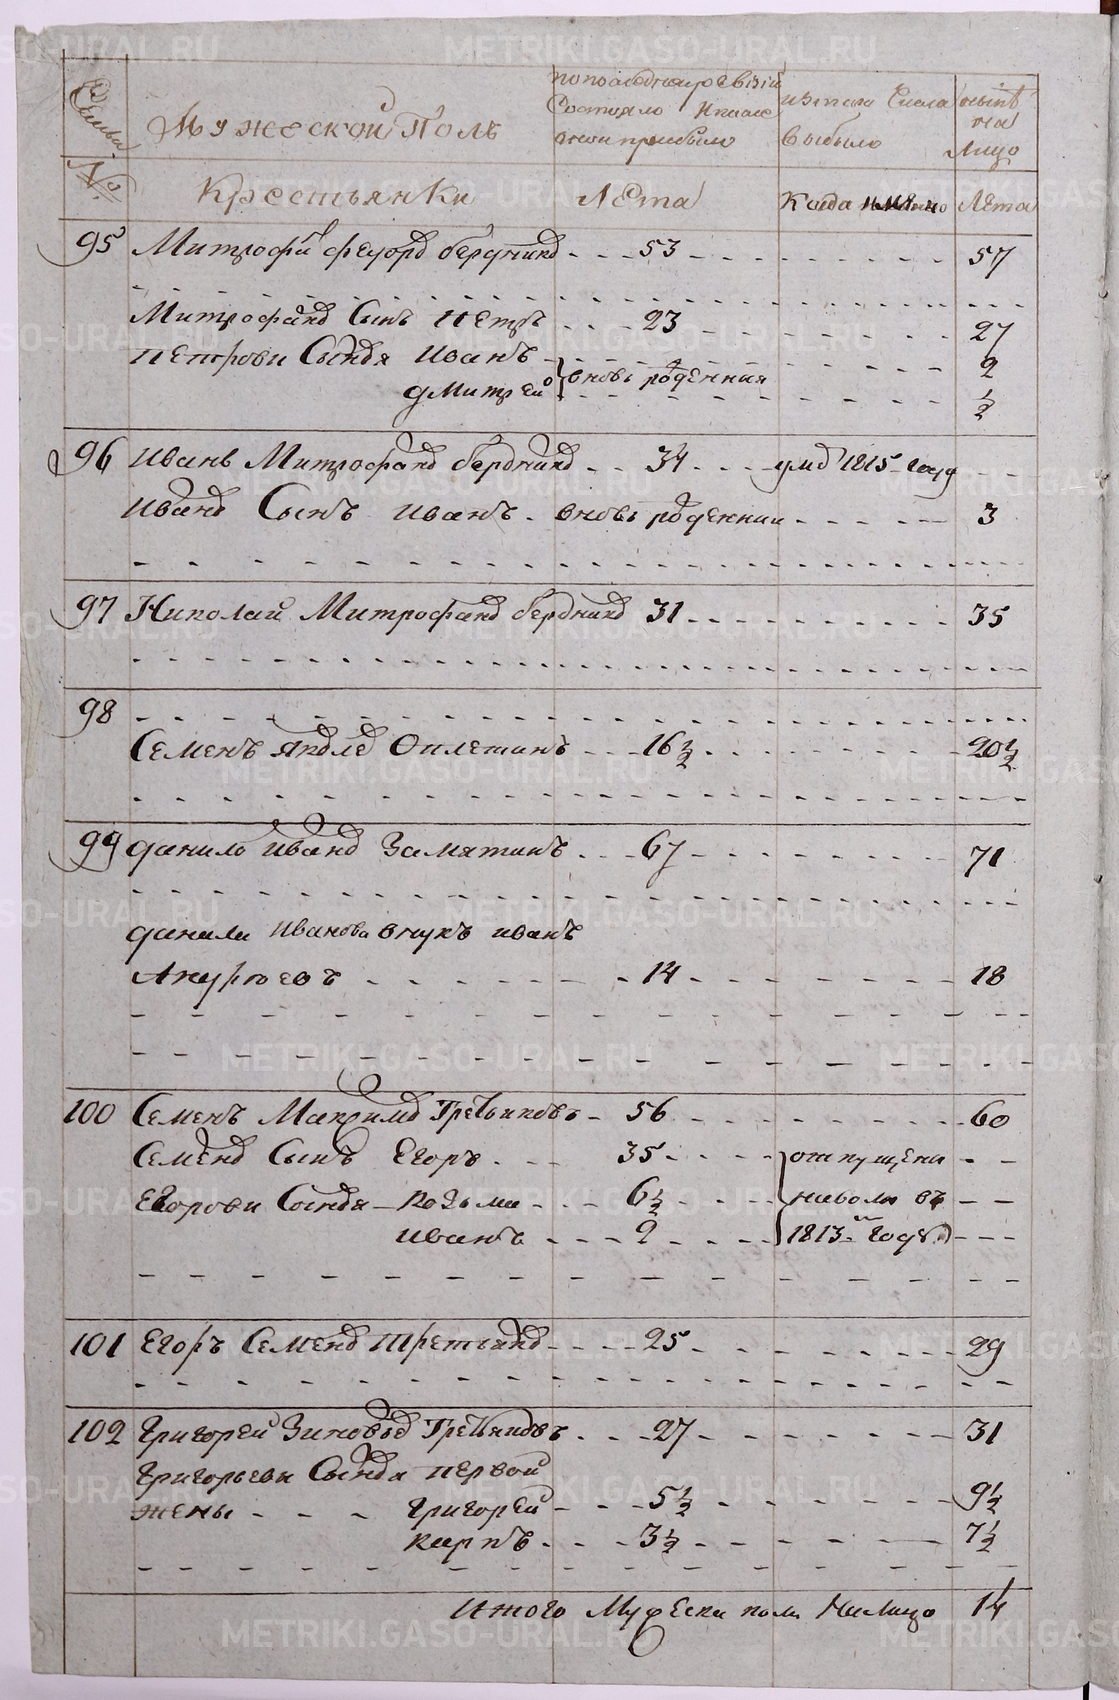 Семьи
Мужеской Полъ
по последней ревизіи
состояло и после
оной прибыло
изъ того числа
выбыло
ныне
на
Лицо
№
Крестьянки
Лета
Когда имянно
Лета
95 Митрофа федоро бердник 53 57
Митрофано Сынъ Петръ 23 27
Петрови Сыновя Иванъ 2
дмитрей вновь рожденния ½
96 Иванъ Митрофано бердник 34 умо 1815 году
Ивано Сынъ Иванъ вновь рожденнии 3
97 Николай Митрофано бердник 31 35
98
Семенъ яковле Оплетинъ 16½ 20½
99 данило Ивано Замятинъ 67 71
данили Иванова внукъ иванъ
Анурьевъ 14 18
100 Семенъ Максимо Третьяковъ 56 60
Семено Сынъ Егоръ 35 отпущени
Егорови Сыновя Козьма 6½ наволю въ
иванъ 2 1813м году
101 Егоръ Семено третьяко 25 29
102 Григорей Зиновье Третьяковъ 27 31
Григорьевы Сыновя первой
жены Григорей 5½ 9½
карпъ 3½ 7½
Итого Мужеска пола Налицо 14
METRIKI.GASO-URAL.RU